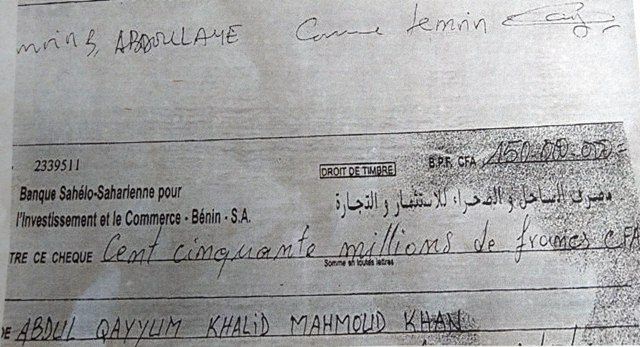 ABDOULAYE Comme temoin
2339511 DROIT DE TIMBRE B.P.F. CFA 150.000.000=
Banque Sahélo-Saharienne pour مصرف الساحل والصحراء للاستثمار والتجارة
l'Investissement et le Commerce - Bénin - S.A.
TRE CE CHEQUE Cent cinquante millions de francs CFA
Somme en toutes lettres
DE ABDUL QAYYUM KHALID MAHMOUD KHAN